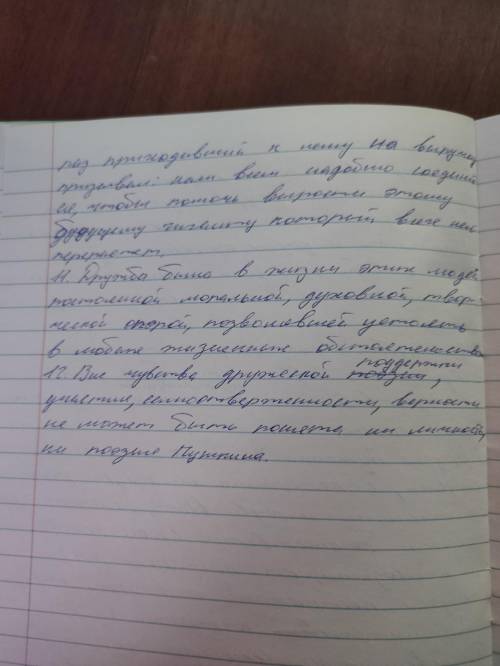 раз приходивший к нему на выручку,
призывал: нам всем надобно соедини
ся, чтобы помочь вырости этому
будущему гиганту который всех нас
перерастет.
11. Дружба была в жизни этих людей
постоянной моральной, духовной, твор
ческой опорой, позволявшей устоять
в любых жизненных обстоятельствах
12. Вне чувства дружеской поддержки,
участия, самоотверженности, верности
не может быть понята ни личность,
ни поэзия Пушкина.